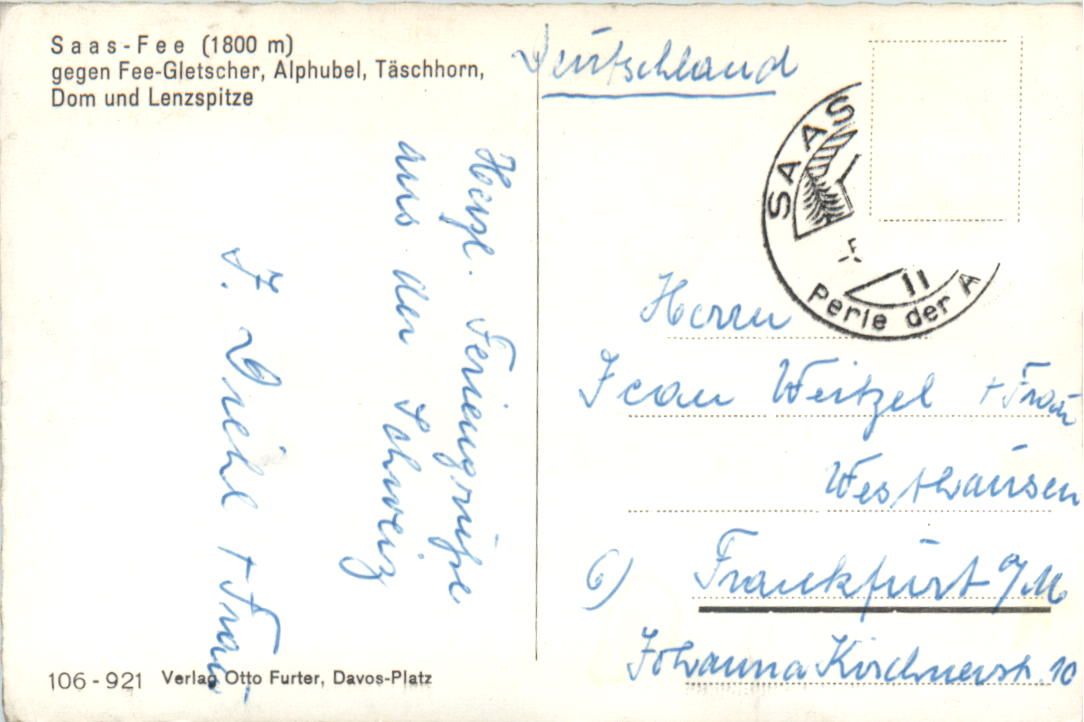 Saas-Fee (1800 m)
gegen Fee-Gletscher, Alphubel, Täschhorn,
Dom und Lenzspitze
Herzl. Feriengrüße
aus der Schweiz
J. Diehl + Frau
106-921 Verlag Otto Furter, Davos-Platz
Deutschland
SAAS
Perle der A
Herrn
Jean Weitzel + Frau
Westhausen
6) Frankfurt a/M
Johanna Kirchnerstr. 10